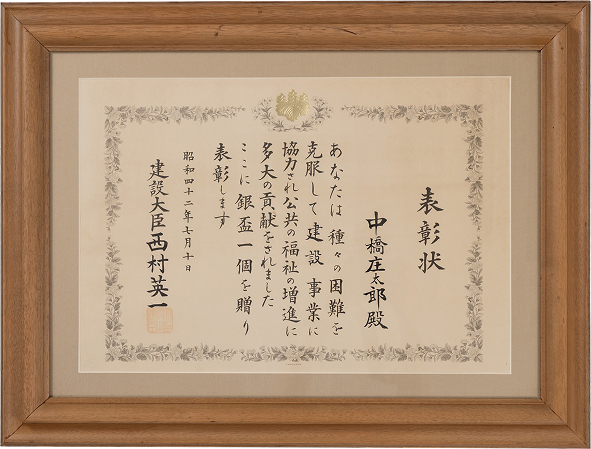 表彰状
中橋庄太郎殿
あなたは種々の困難を
克服して建設事業に
協力され公共の福祉の増進に
多大の貢献をされました
ここに銀盃一個を贈り
表彰します
昭和四十二年七月十日
建設大臣西村英一